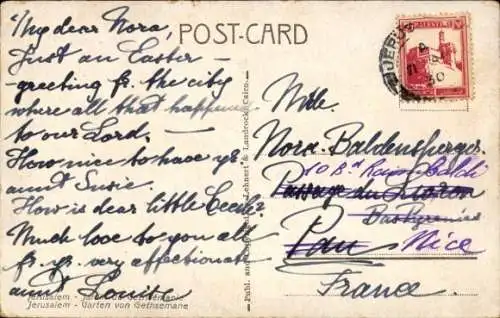 POST-CARD
"My dear Nora,
Just an Easter –
greeting fr. the city
where all that happened
to our Lord, –
How nice to have yr.
aunt Susie.
How is dear little Cecile?
Much love to you all
fr. yr. very affectionate
aunt Louise
Jerusalem - Gethsemane
Jerusalem - Garten von Gethsemane
Publ. and Lehnert & Landrock, Cairo.
PALESTINE
Mlle.
Nora Baldensperger.
10 Bd
Passage du
Pau Nice
France.